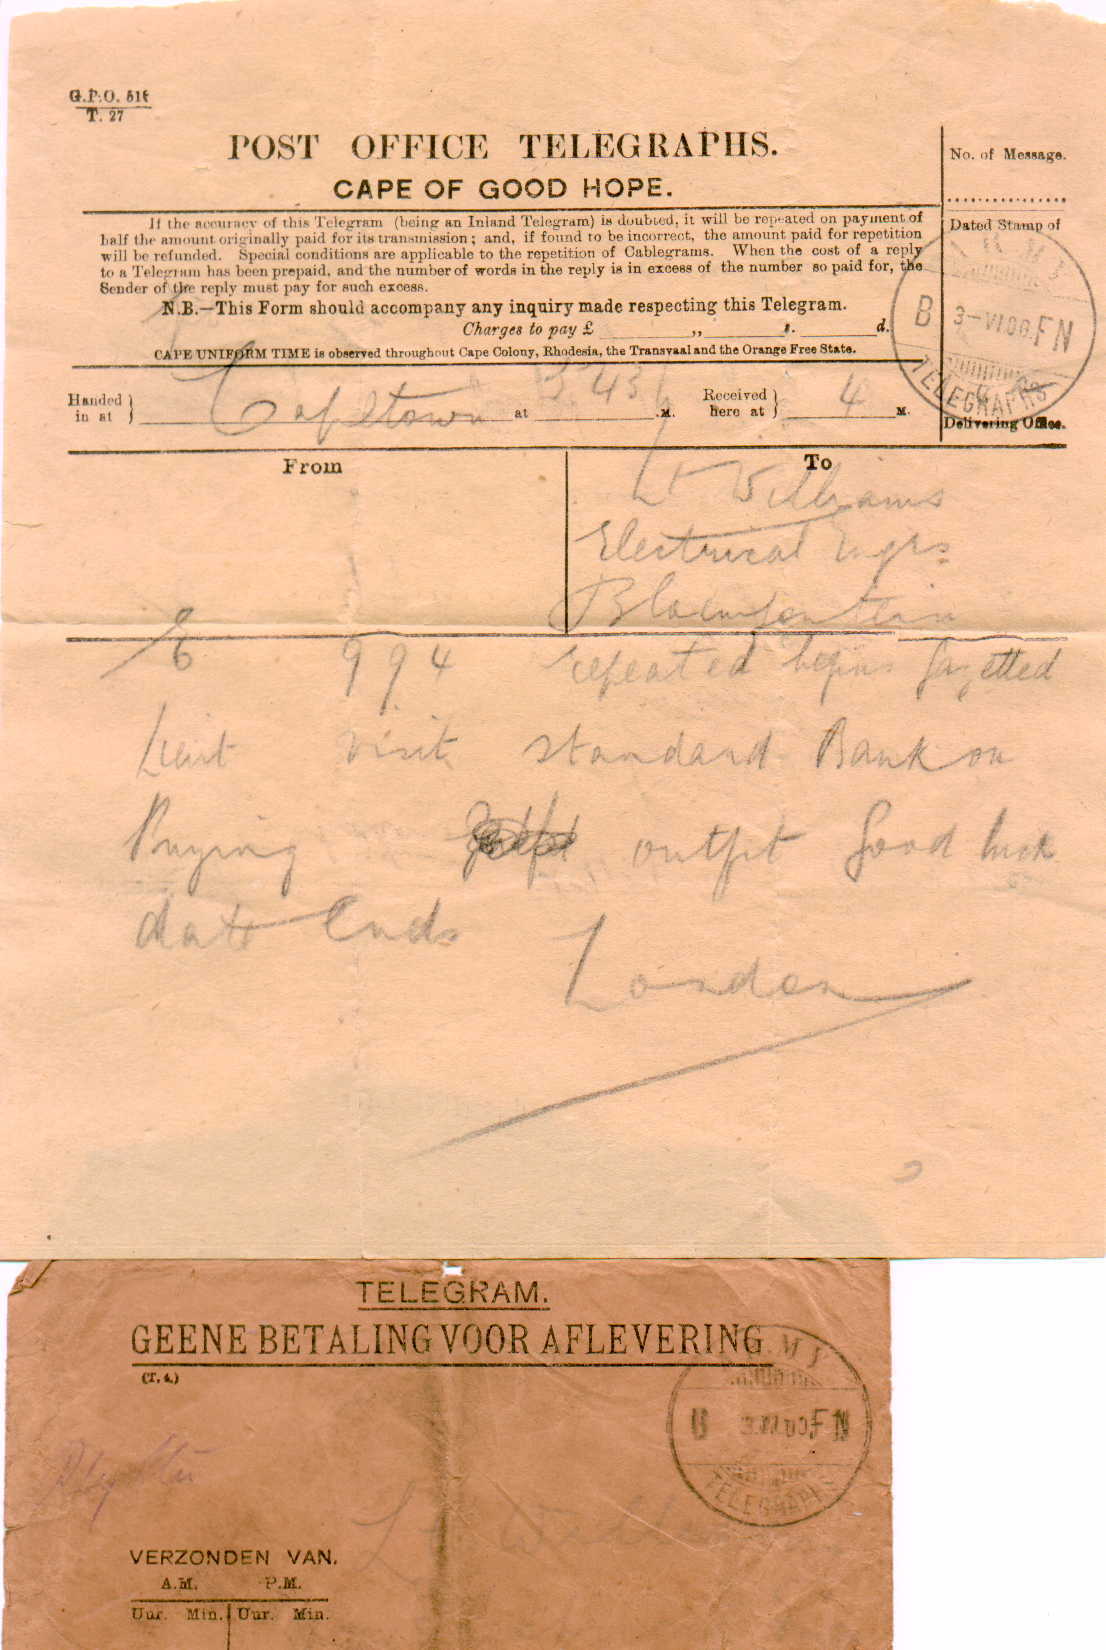 G.P.O. 516
T. 27
POST OFFICE TELEGRAPHS.
CAPE OF GOOD HOPE.
No. of Message.
Dated Stamp of
If the accuracy of this Telegram (being an Inland Telegram) is doubted, it will be repeated on payment of
half the amount originally paid for its transmission; and, if found to be incorrect, the amount paid for repetition
will be refunded. Special conditions are applicable to the repetition of Cablegrams. When the cost of a reply
to a Telegram has been prepaid, and the number of words in the reply is in excess of the number so paid for, the
Sender of the reply must pay for such excess.
N.B.—This Form should accompany any inquiry made respecting this Telegram.
Charges to pay £ ,, s. d.
CAPE UNIFORM TIME is observed throughout Cape Colony, Rhodesia, the Transvaal and the Orange Free State.
ARMY
B 3-VI.00.FN
TELEGRAPHS
Delivering Office.
Handed in at } Capetown at 3.43 .M. Received here at } 4 M.
From
To
Lt Williams
Electrical Engrs
Bloemfontein
994 repeated begins Gazetted
Lieut visit standard Bank on
Buying outfit Good luck
Ends
London
TELEGRAM.
GEENE BETALING VOOR AFLEVERING
(T. 4.)
ARMY
B 3.VI.00 FN
TELEGRAPHS
Lt Williams
VERZONDEN VAN.
A.M. P.M.
Uur. Min. Uur. Min.